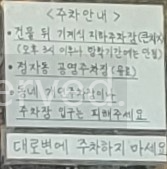 <주차안내>
• 건물 뒤 기계식 지하주차장
(오후 3시 이후나 방학기간에는 만차)
• 정자동 공영주차장 (유료)
주차장 입구는 피해주세요
대로변에 주차하지 마세요